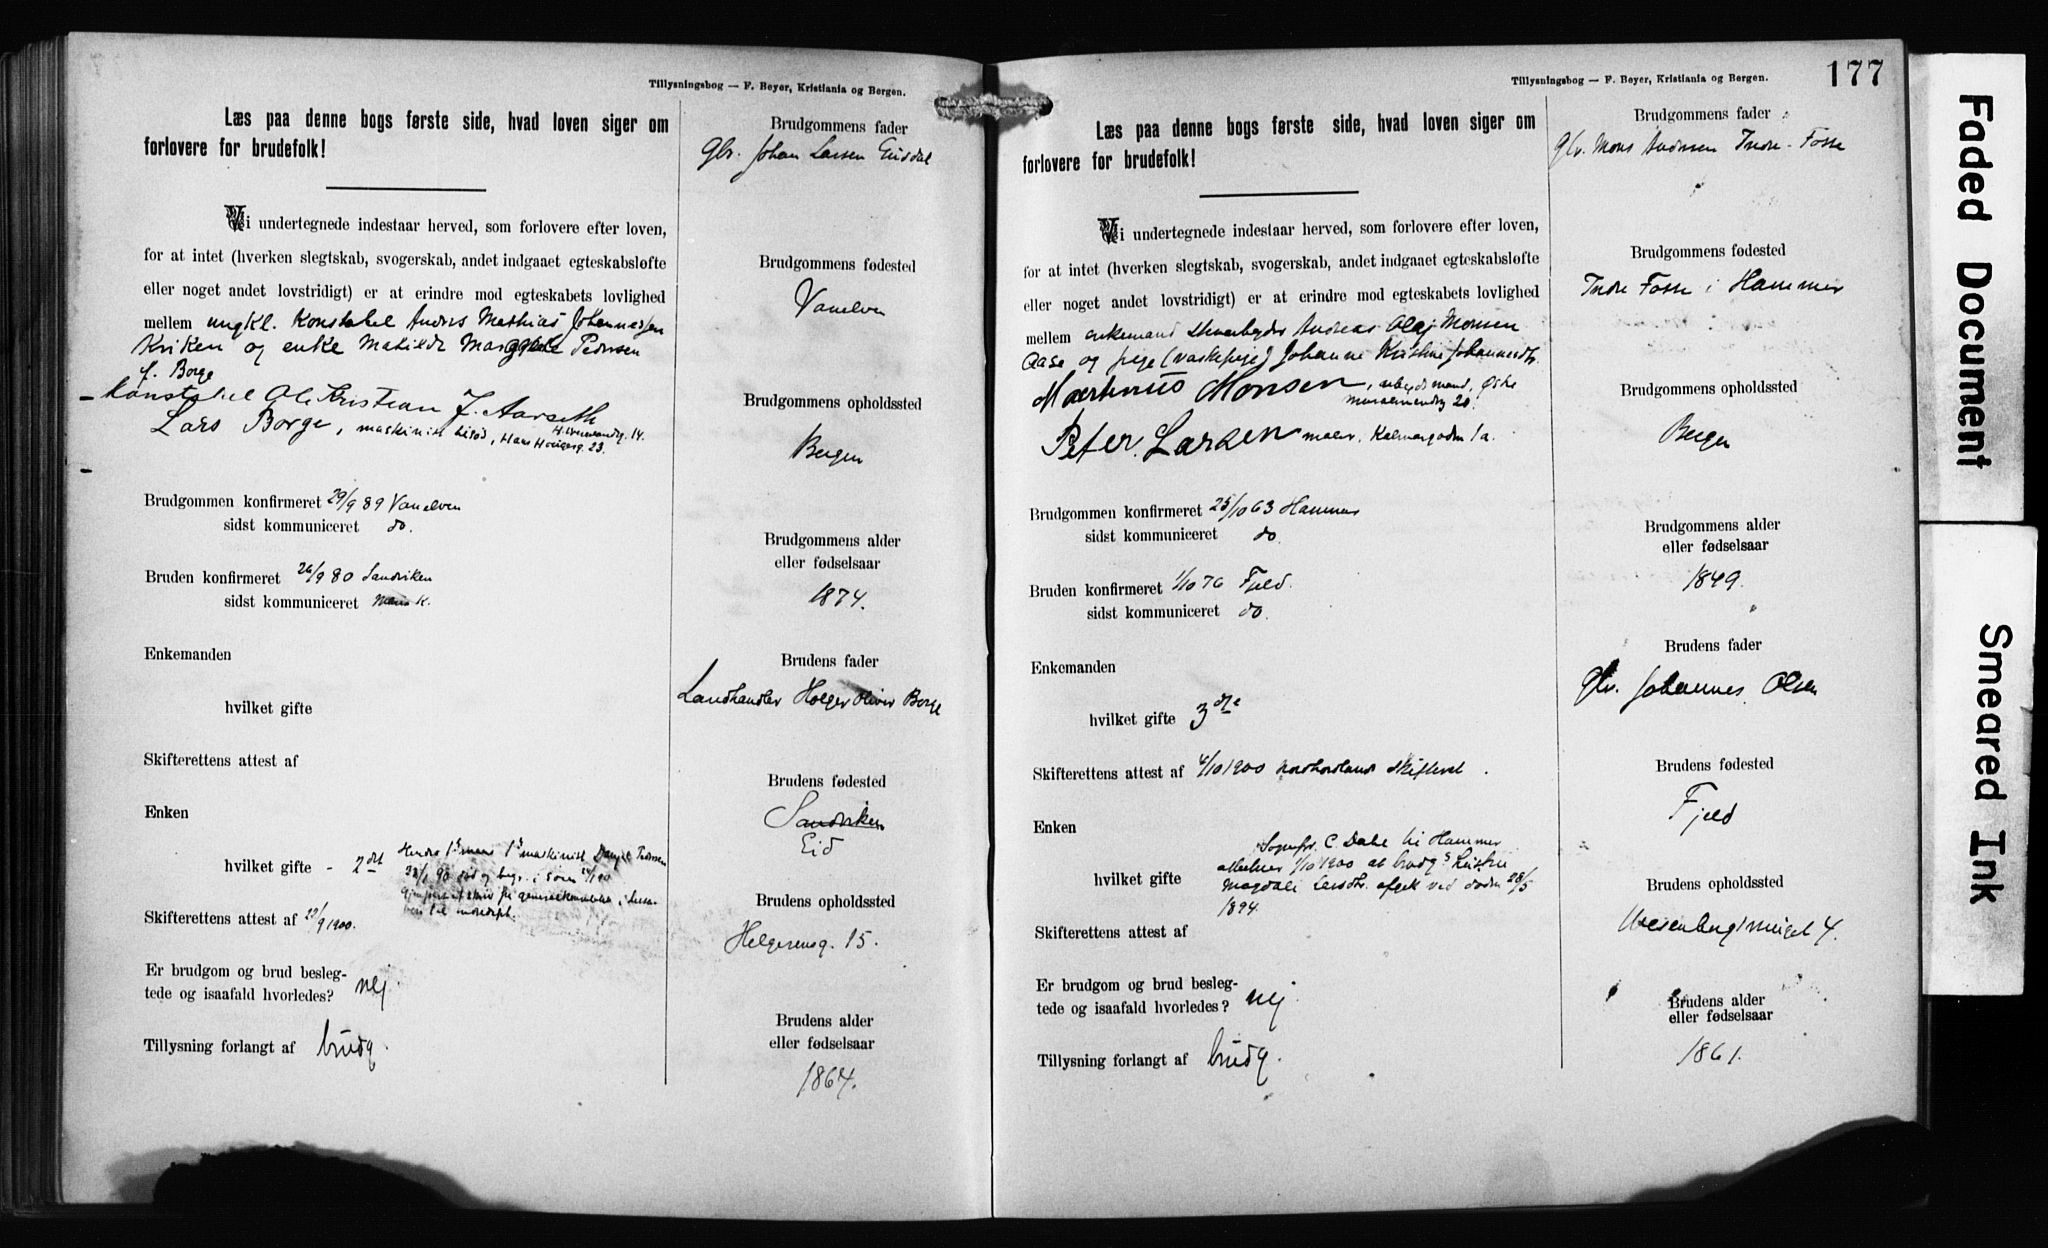 Tillysningsbog — F. Beyer, Kristiania og Bergen.
Læs paa denne bogs første side, hvad loven siger om
forlovere for brudefolk!
Vi undertegnede indestaar herved, som forlovere efter loven,
for at intet (hverken slegtskab, svogerskab, andet indgaaet egteskabsløfte
eller noget andet lovstridigt) er at erindre mod egteskabets lovlighed
mellem ungkl. Konstabel Andreas Mathias Johannessen
Kriken og enke Matilde Margrete Pedersen
f. Borge
Konstabel Ole Kristian J. Aarseth
14.
Lars Borge, maskinist, Hans Haugesg. 23.
Brudgommen konfirmeret 29/9 89 Vanelven
sidst kommuniceret do.
Bruden konfirmeret 26/9 80 Sandviken
sidst kommuniceret K.
Enkemanden
hvilket gifte
Skifterettens attest af
Enken
hvilket gifte - 2det
Hendes 1ste mand 1ste maskinist Daniel Pedersen
død og begr.
Skifterettens attest af 22/9 1900.
Er brudgom og brud besleg-
tede og isaafald hvorledes? nej
Tillysning forlangt af brudg.
Brudgommens fader
Gbr. Johan Larsen Eusdal
Brudgommens fødested
Vanelven
Brudgommens opholdssted
Bergen
Brudgommens alder
eller fødselsaar
1874.
Brudens fader
Landhandler Holger Oliver Borge
Brudens fødested
Sandviken
Eid
Brudens opholdssted
Helgesensg. 15.
Brudens alder
eller fødselsaar
1864.
177
Tillysningsbog — F. Beyer, Kristiania og Bergen.
Læs paa denne bogs første side, hvad loven siger om
forlovere for brudefolk!
Vi undertegnede indestaar herved, som forlovere efter loven,
for at intet (hverken slegtskab, svogerskab, andet indgaaet egteskabsløfte
eller noget andet lovstridigt) er at erindre mod egteskabets lovlighed
mellem enkemand Andreas Olaj Monsen
Aase og pige (vaskepige) Johanne Kristine Johannesdtr.
Martinus Monsen, arbeidsmand, Øvre
20.
Peter Larsen maler. Kalmargaden 1a.
Brudgommen konfirmeret 25/10 63 Hammer
sidst kommuniceret do
Bruden konfirmeret 1/10 76 Fjeld.
sidst kommuniceret do.
Enkemanden
hvilket gifte 3die
Skifterettens attest af 4/10 1900 Nordhordlands skifteret.
Enken
Sognepr. C Dahl til Hammer
attesterer 1/10 1900 at brudg.s hustru
hvilket gifte
Magdali Larsdtr. afgik ved døden 28/5
1894.
Skifterettens attest af
Er brudgom og brud besleg-
tede og isaafald hvorledes? nej
Tillysning forlangt af brudg.
Brudgommens fader
Gbr. Mons Andersen Indre-Fosse
Brudgommens fødested
Indre Fosse i Hammer
Brudgommens opholdssted
Bergen
Brudgommens alder
eller fødselsaar
1849.
Brudens fader
Gbr. Johannes Olsen
Brudens fødested
Fjeld
Brudens opholdssted
Wesenbergsmuget 4.
Brudens alder
eller fødselsaar
1861.
Faded Document
Smeared Ink